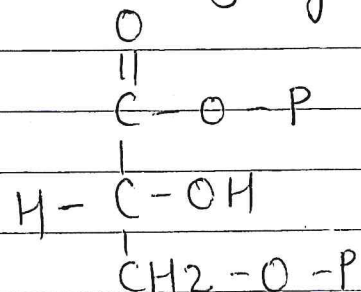 O
||
C - O - P
|
H - C - OH
|
CH2 - O - P